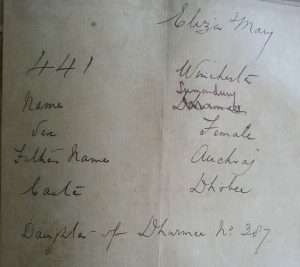 Eliza Mary
441 Winchester
Name Dharmee
Sex Female
Father Name Auchraj
Caste Dhobee
Daughter of Dharmee No. 387.